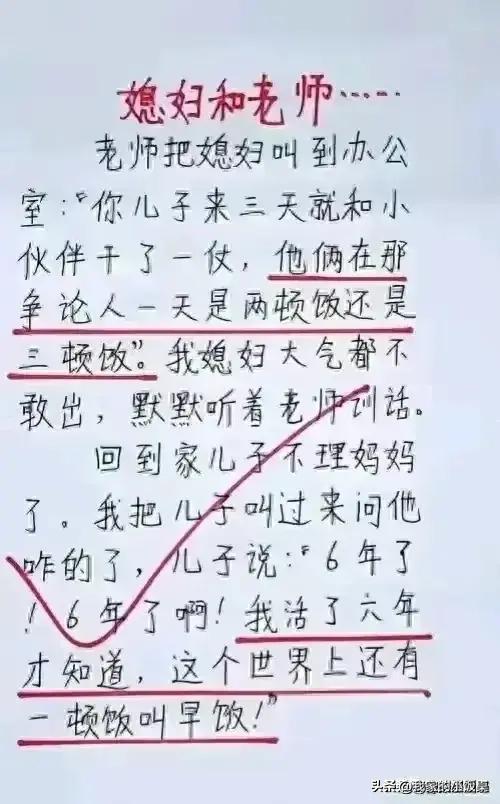 媳妇和老师……
老师把媳妇叫到办公
室:“你儿子来三天就和小
伙伴干了一仗,他俩在那
争论人一天是两顿饭还是
三顿饭”。我媳妇大气都不
敢出,默默听着老师训话。
回到家儿子不理妈妈
了。我把儿子叫过来问他
咋的了,儿子说:“6年了
!6年了啊!我活了六年
才知道,这个世界上还有
一顿饭叫早饭!”
头条@我家的小饭桌